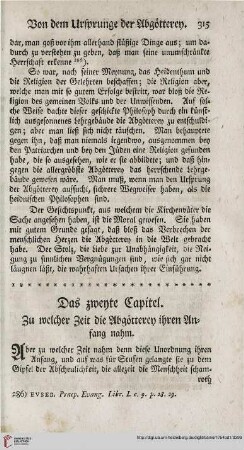 Von dem Ursprunge der Abgötterey. 315
dar, man goß vor ihm allerhand flüßige Dinge aus; um da-
durch zu verstehen zu geben, daß man seine unumschränkte
Herrschaft erkenne 286).
So war, nach seiner Meynung, das Heidenthum und
die Religion der Gelehrten beschaffen; die Religion aber,
welche man mit so gutem Erfolge bestritt, war bloß die Re-
ligion des gemeinen Volks und der Unwissenden. Auf sol-
che Weise dachte dieser geschickte Philosoph durch ein künst-
lich ausgesonnenes Lehrgebäude die Abgötterey zu entschuldi-
gen; aber man ließ sich nicht täuschen. Man behauptete
gegen ihn, daß man niemals irgendwo, ausgenommen bey
den Patriarchen und bey den Jüden eine Religion gefunden
habe, die so ausgesehen, wie er sie abbildete; und daß hin-
gegen die allergröbste Abgötterey das herrschende Lehrge-
bäude gewesen wäre. Man muß, wenn man den Ursprung
der Abgötterey aufsucht, sichrere Wegweiser haben, als die
heidnischen Philosophen sind.
Der Gesichtspunkt, aus welchem die Kirchenväter die
Sache angesehen haben, ist die Moral gewesen. Sie haben
mit gutem Grunde gesagt, daß bloß das Verbrechen der
menschlichen Herzen die Abgötterey in die Welt gebracht
habe. Der Stolz, die Liebe zur Unabhängigkeit, die Nei-
gung zu sinnlichen Vergnügungen sind, wie sich gar nicht
läugnen läßt, die wahrhaften Ursachen ihrer Einführung.
Das zweyte Capitel.
Zu welcher Zeit die Abgötterey ihren An-
fang nahm.
Aber zu welcher Zeit nahm denn diese Unordnung ihren
Anfang, und auf was für Stufen gelangte sie zu dem
Gipfel der Abscheulichkeit, die allezeit die Menschheit scham-
roth
286) EVSEB. Præp. Evang. Libr. I. c. 9. p. 28. 29.